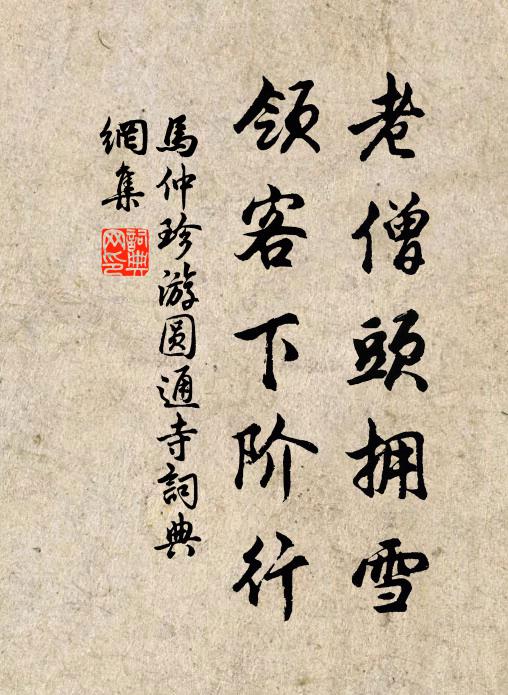 老僧頭拥雪
领客下阶行
馬仲珍游圆通寺詞典
網集
詞典
网印